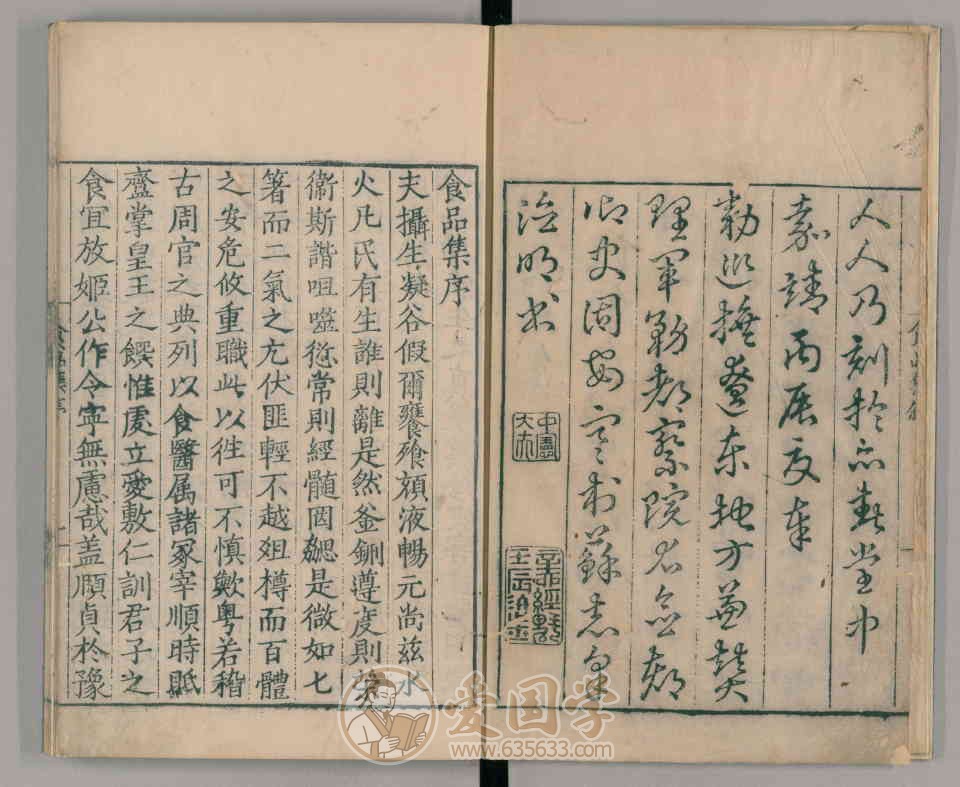 人人乃刻於堂中
嘉靖丙辰夏奉
勅巡撫遼東地方兼贊
理軍務都察院右僉都
御史固安寒村蘇志皋
明書
食品集序
夫攝生凝谷假爾饔飧液暢元尚兹水
火凡民有生誰則離是然釜鉶遵度則榮
衞斯諧咀噬愆常則經髓罔是微如七
箸而二氣之亢伏匪輕不越俎樽而百體
之安危攸重職此以徃可不慎歟粤若稽
古周官之典列以食醫属諸冢宰順時眡
齍掌皇王之饌惟虔立愛敷仁訓君子之
食宜放姬公作令寧無慮哉盖頤貞於豫
爱国学
www.635633.com